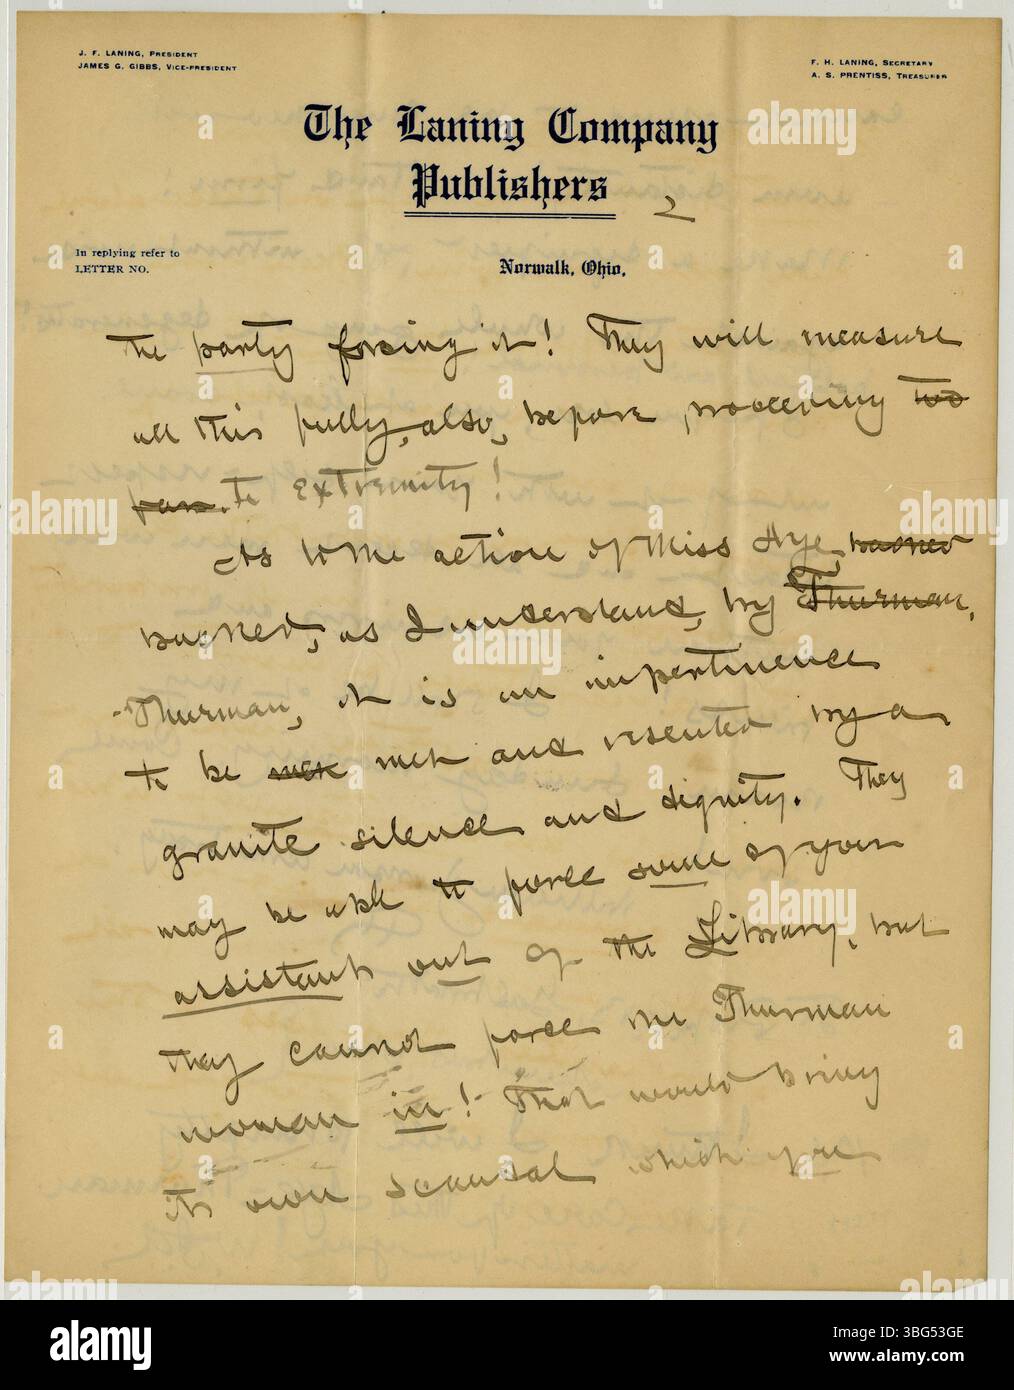 J. F. LANING, PRESIDENT
JAMES G. GIBBS, VICE-PRESIDENT
F. H. LANING, SECRETARY
A. S. PRENTISS, TREASURER
The Laning Company
Publishers
2
In replying refer to
LETTER NO.
Norwalk, Ohio.
the party forcing it! They will measure
all this fully, also, before proceeding too
far. to extremity!
As to the action of Miss Hye, backed
backed, as I understand, by Thurman,
Thurman, it is an impertinence
to be met met and resented by a
granite silence and dignity. They
may be able to force some of your
assistants out of the Library, but
they cannot force the Thurman
woman in! That would bring
its own scandal which you
alamy
Image ID: 3BG53GE
www.alamy.com